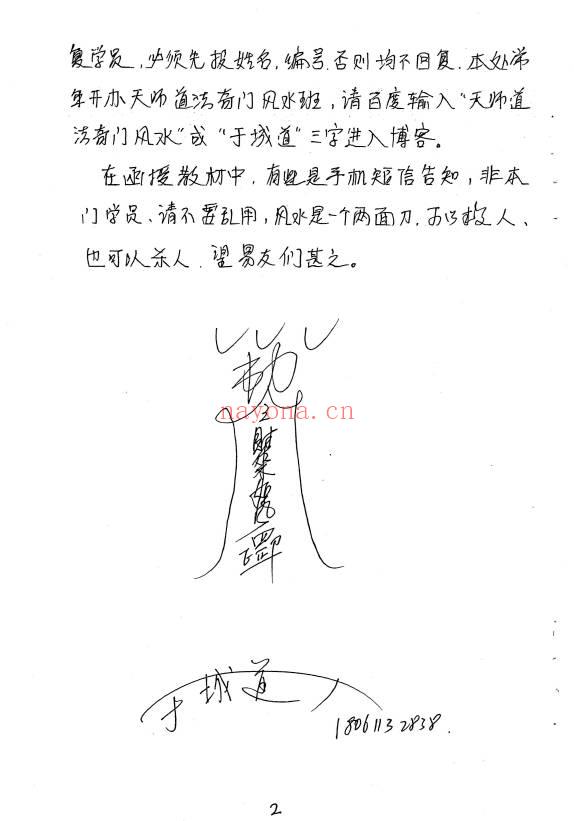 复学员,必须先报姓名,编号,否则均不回复.本处常
年开办天师道法奇门风水班,请百度输入“天师道
法奇门风水”或“于城道”三字进入博客。
在函授教材中,有些是手机短信告知,非本
门学员、请不要乱用,风水是一个两面刀.可以救人、
也可以杀人.望易友们甚之。
敕
nayona.cn
于城道
18061132838.
2